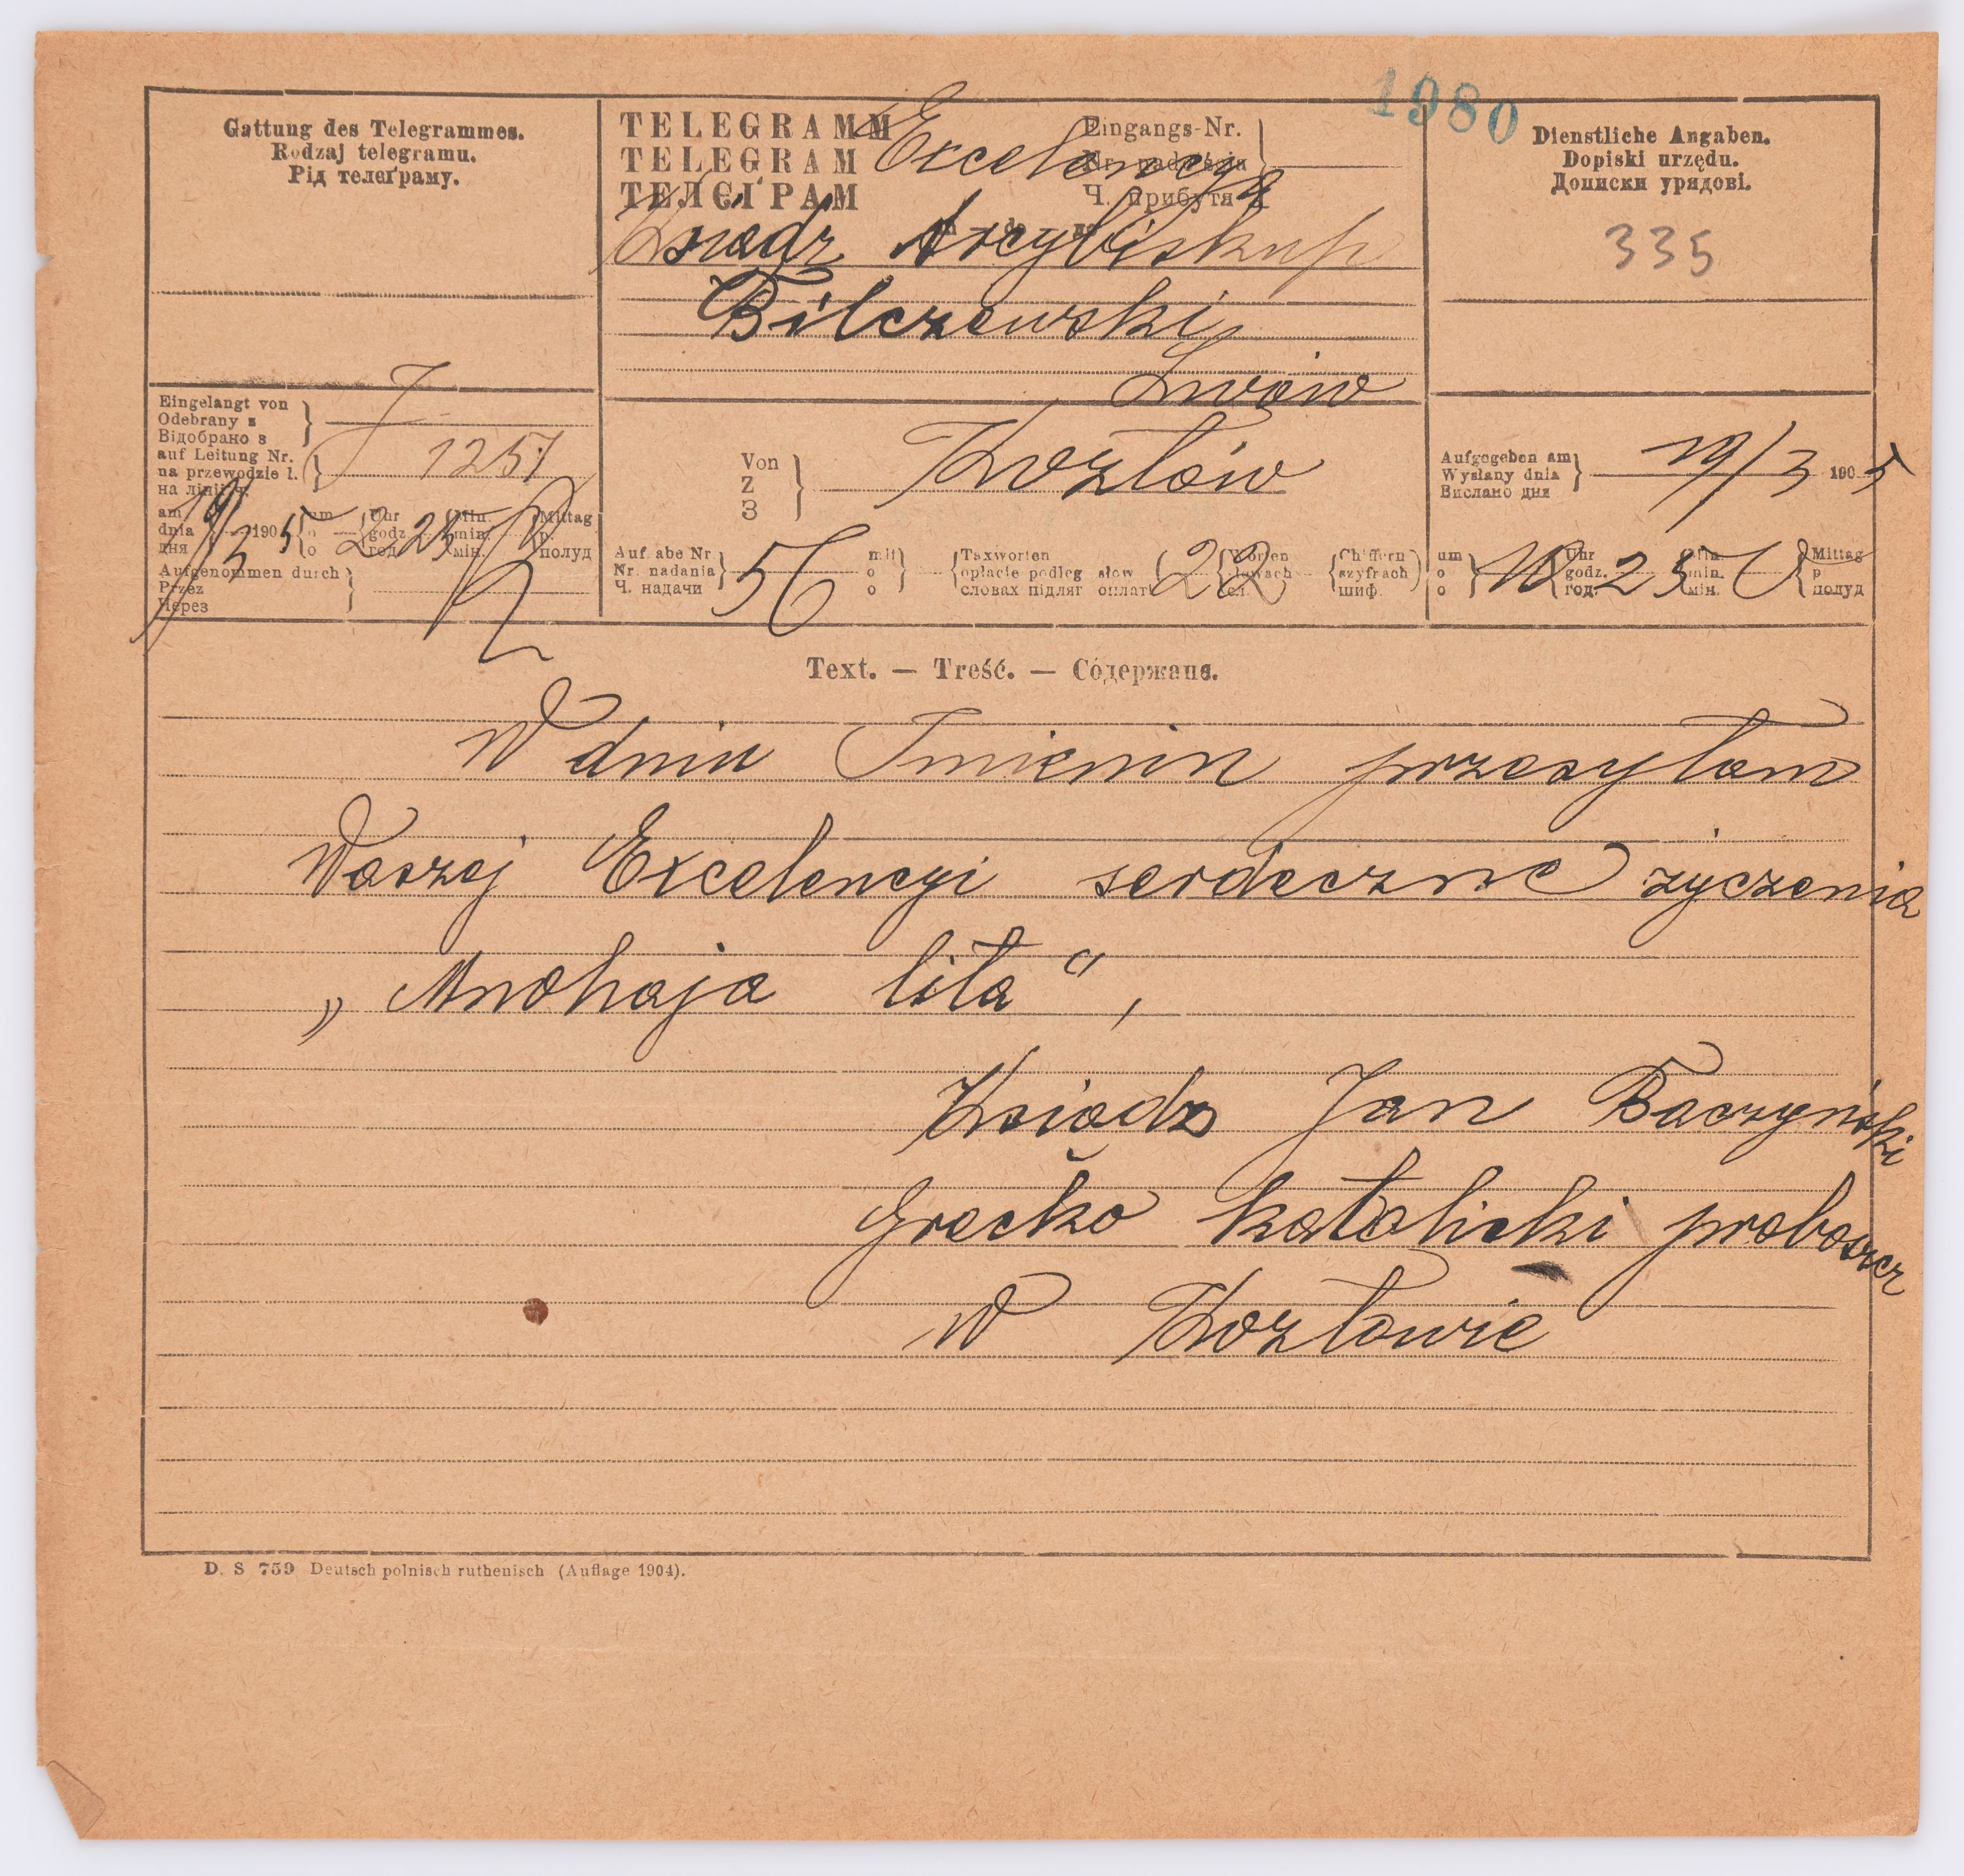 1980
Gattung des Telegrammes.
Rodzaj telegramu.
Рід телєґраму.
TELEGRAMM
TELEGRAM
ТЕЛЄҐРАМ
Eingangs-Nr.
Ч. прибутя
Excelencya
Ksiądz Arcybiskup
Bilczewski
Lwów
Dienstliche Angaben.
Dopiski urzędu.
Дописки урядові.
335
Eingelangt von
Odebrany z
Відобрано з
auf Leitung Nr.
na przewodzie l.
на лінії ч.
1251
am
dnia
дня
19/3 1905
um
o
o
2
Uhr
godz
год.
25
Min.
min.
мін.
Mittag
p.
полуд
Aufgenommen durch
Przez
Через
Von
Z
З
Kozłów
Aufgegeben am
Wysłany dnia
Вислано дня
19/3 1905
Aufgabe Nr
Nr. nadania
Ч. надачи
56
mit
o
o
Taxworten
opłacie podleg słow
словах підляг оплат
22
Worten
słowach
сл.
Chiffern
szyfrach
шиф.
um
o
o
10
Uhr
godz.
год.
25
Min.
min.
мін.
Mittag
p
полуд
Text. — Treść. — Содержанє.
W dniu Imienin przesyłam
Waszej Excelencyi serdeczne życzenia
„Mnohaja lita",
Ksiądz Jan Baczyński
Grecko katolicki proboszcz
w Kozłowie
D. S 759 Deutsch polnisch ruthenisch (Auflage 1904).